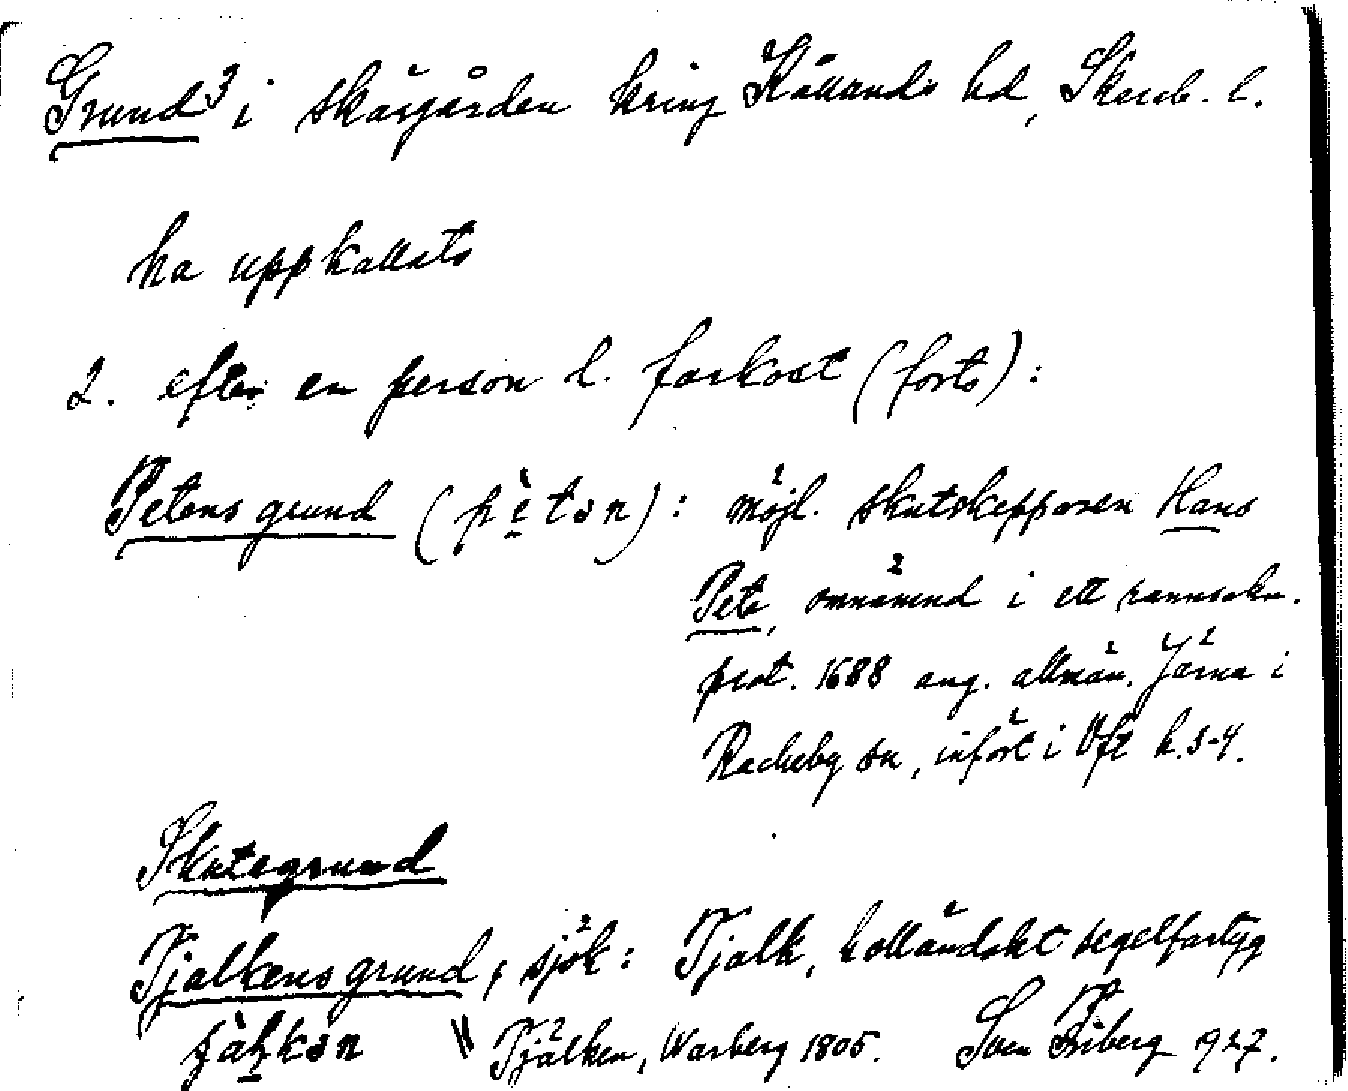 Grund³ i skärgården kring Kållands hd, Skarab. l.
ha uppkallats
2. efter en person l. farkost (forts):
Petens grund (pètən): möjl. skutskepparen Hans
Pete, omnämnd i ett rannsakn.
prot. 1688 ang. allmän. Järna i
Rackeby sn, infört i Vft h. 3-4.
Skutegrund
Tjalkens grund, sjök: Tjalk, holländskt segelfartyg
" Tjälken, Warberg 1805. Sven Friberg 927.